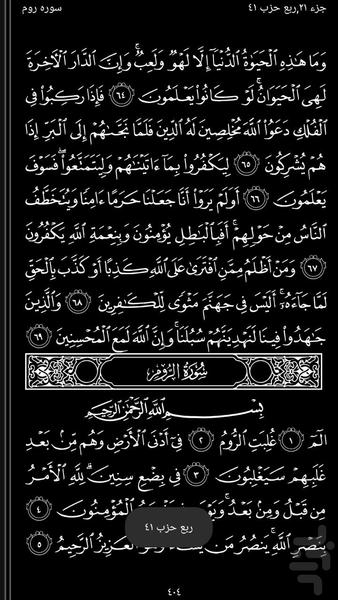 جزء ۲۱,ربع حزب ۴۱
سوره روم
وَمَا هَٰذِهِ ٱلْحَيَوٰةُ ٱلدُّنْيَآ إِلَّا لَهْوٌ وَلَعِبٌ ۚ وَإِنَّ ٱلدَّارَ ٱلْءَاخِرَةَ
لَهِىَ ٱلْحَيَوَانُ ۚ لَوْ كَانُوا۟ يَعْلَمُونَ ﴿٦٤﴾ فَإِذَا رَكِبُوا۟ فِى
ٱلْفُلْكِ دَعَوُا۟ ٱللَّهَ مُخْلِصِينَ لَهُ ٱلدِّينَ فَلَمَّا نَجَّىٰهُمْ إِلَى ٱلْبَرِّ إِذَا
هُمْ يُشْرِكُونَ ﴿٦٥﴾ لِيَكْفُرُوا۟ بِمَآ ءَاتَيْنَٰهُمْ وَلِيَتَمَتَّعُوا۟ ۖ فَسَوْفَ
يَعْلَمُونَ ﴿٦٦﴾ أَوَلَمْ يَرَوْا۟ أَنَّا جَعَلْنَا حَرَمًا ءَامِنًا وَيُتَخَطَّفُ
ٱلنَّاسُ مِنْ حَوْلِهِمْ ۚ أَفَبِٱلْبَٰطِلِ يُؤْمِنُونَ وَبِنِعْمَةِ ٱللَّهِ يَكْفُرُونَ
﴿٦٧﴾ وَمَنْ أَظْلَمُ مِمَّنِ ٱفْتَرَىٰ عَلَى ٱللَّهِ كَذِبًا أَوْ كَذَّبَ بِٱلْحَقِّ
لَمَّا جَآءَهُۥٓ ۚ أَلَيْسَ فِى جَهَنَّمَ مَثْوًى لِّلْكَٰفِرِينَ ﴿٦٨﴾ وَٱلَّذِينَ
جَٰهَدُوا۟ فِينَا لَنَهْدِيَنَّهُمْ سُبُلَنَا ۚ وَإِنَّ ٱللَّهَ لَمَعَ ٱلْمُحْسِنِينَ ﴿٦٩﴾
سُورَةُ ٱلرُّومِ
بِسْمِ ٱللَّهِ ٱلرَّحْمَٰنِ ٱلرَّحِيمِ
الٓمٓ ﴿١﴾ غُلِبَتِ ٱلرُّومُ ﴿٢﴾ فِىٓ أَدْنَى ٱلْأَرْضِ وَهُم مِّنۢ بَعْدِ
غَلَبِهِمْ سَيَغْلِبُونَ ﴿٣﴾ فِى بِضْعِ سِنِينَ ۗ لِلَّهِ ٱلْأَمْرُ
مِن قَبْلُ وَمِنۢ بَعْدُ ۚ ٱلْمُؤْمِنُونَ ﴿٤﴾
بِنَصْرِ ٱللَّهِ ۚ يَنصُرُ مَن ٱلْعَزِيزُ ٱلرَّحِيمُ ﴿٥﴾
ربع حزب ۴۱
۴۰۴